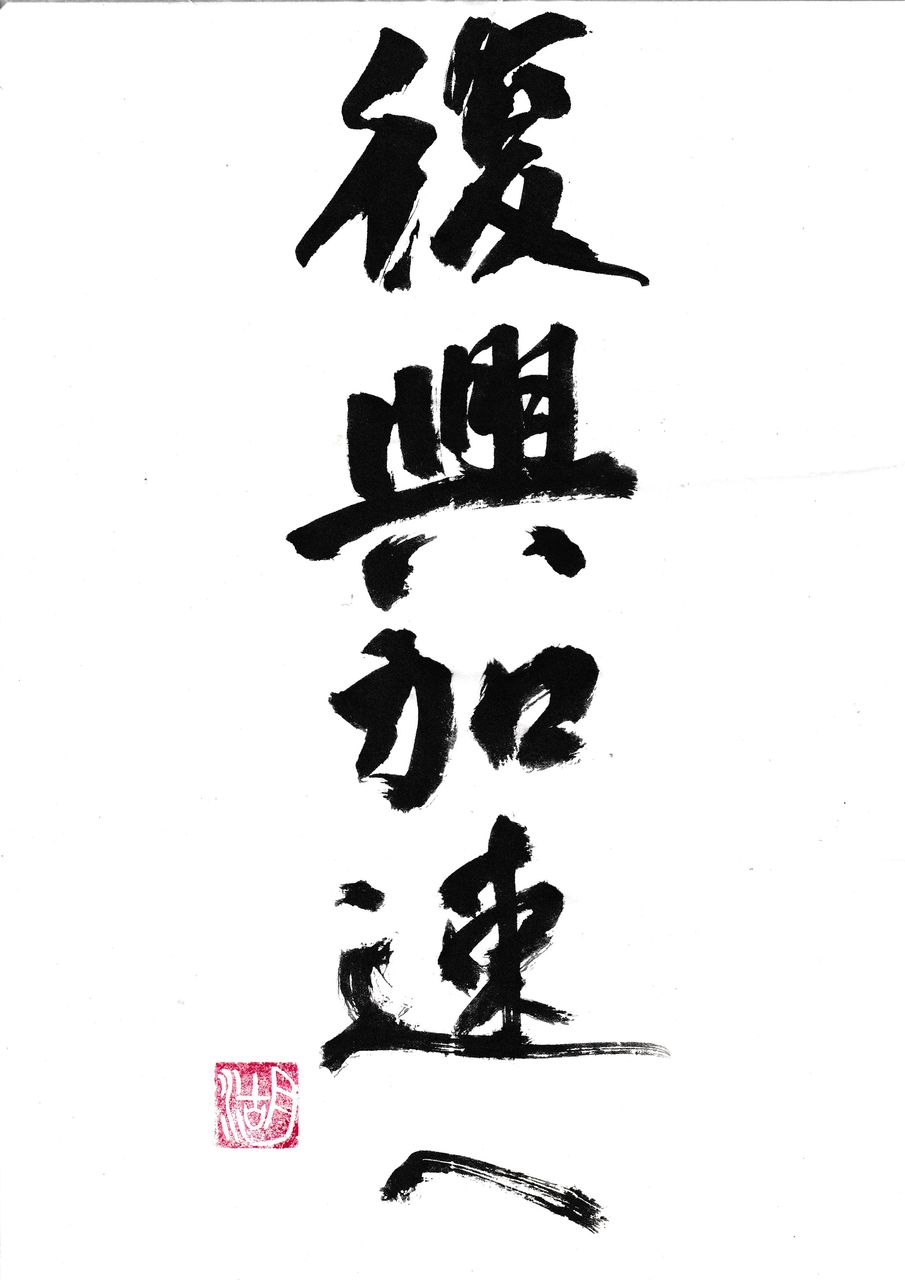 復興加速へ
湖